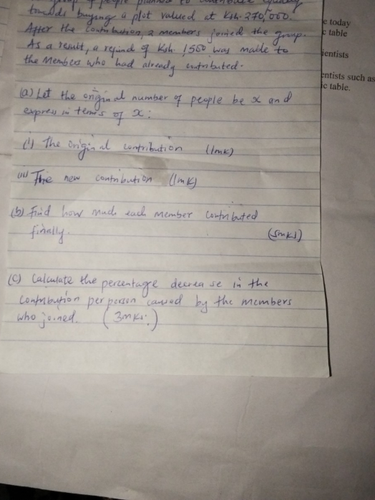 group of people planned to contribute equally
towards buying a plot valued at Ksh. 270,000.
After the contributions, 2 members joined the group.
As a result, a refund of Ksh 1500 was made to
the members who had already contributed.
(a) Let the original number of people be x and
express in terms of x:
(i) The original contribution (1mk)
(ii) The new contribution (1mk)
(b) Find how much each member contributed
finally. (5mks)
(c) Calculate the percentage decrease in the
contribution per person caused by the members
who joined. (3mks.)
e today
c table
ientists
entists such as
ic table.